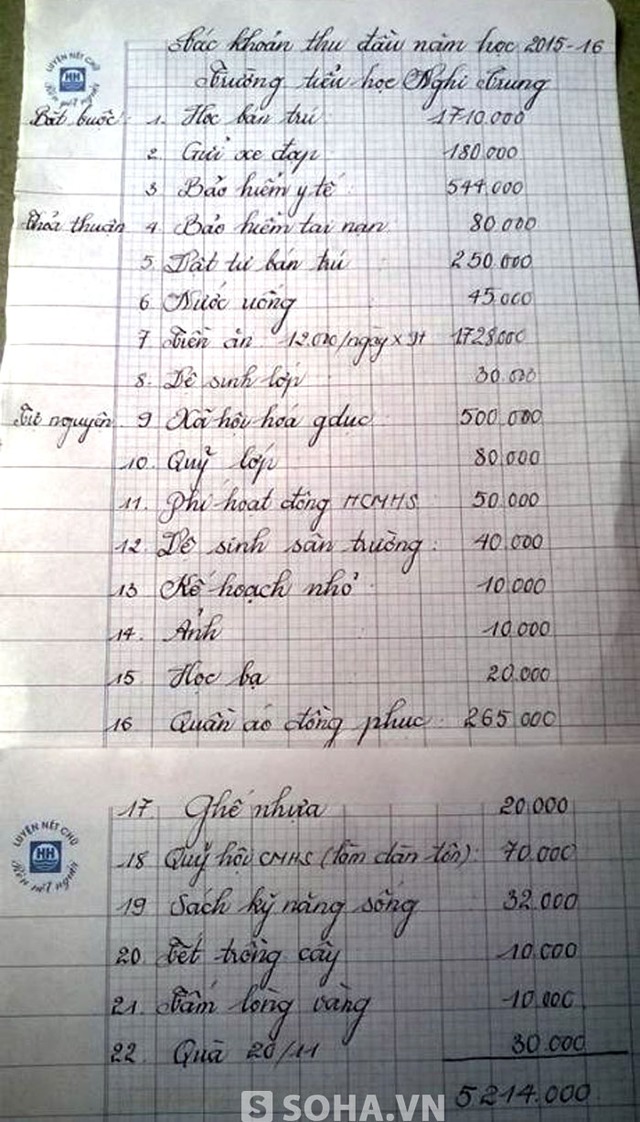 Các khoản thu đầu năm học 2015-16
LUYỆN NẾT CHỮ
HH
Rèn nết người
Trường tiểu học Nghi Trung
Bắt buộc: 1. Học bán trú: 1710.000
2. Gửi xe đạp: 180.000
3 Bảo hiểm y tế: 544.000
Thỏa thuận 4 Bảo hiểm tai nạn: 80.000
5. Vật tư bán trú: 250.000
6 Nước uống: 45.000
7 Tiền ăn 12.000/ngày x 9t 1728.000
8. Vệ sinh lớp: 30.000
Tự nguyện 9 Xã hội hoá gdục: 500.000
10. Quỹ lớp: 80.000
11. Phí hoạt động HCMHS: 50.000
12. Vệ sinh sân trường: 40.000
13 Kế hoạch nhỏ: 10.000
14. Ảnh 10.000
15. Học bạ 20.000
16 Quần áo đồng phục: 265.000
17 Ghế nhựa 20.000
LUYỆN NẾT CHỮ
HH
Rèn nết người
18 Quỹ hội CMHS (làm dàn tôn): 70.000
19 Sách kỹ năng sống 32.000
20 Tết trồng cây 10.000
21. Tấm lòng vàng 10.000
22 Quà 20/11 30.000
5214.000
S SOHA.VN